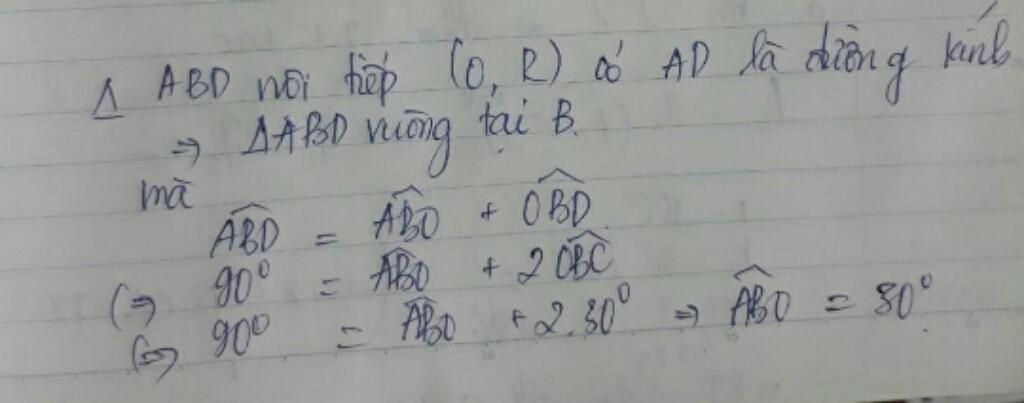 Δ ABD nội tiếp (O, R) có AD là đường kính
⇒ ΔABD vuông tại B.
mà
\widehat{ABD} = \widehat{ABO} + \widehat{OBD}
(⇒ 90° = \widehat{ABO} + 2\widehat{OBC}
(⇒ 90° = \widehat{ABO} + 2.30° ⇒ \widehat{ABO} = 30°